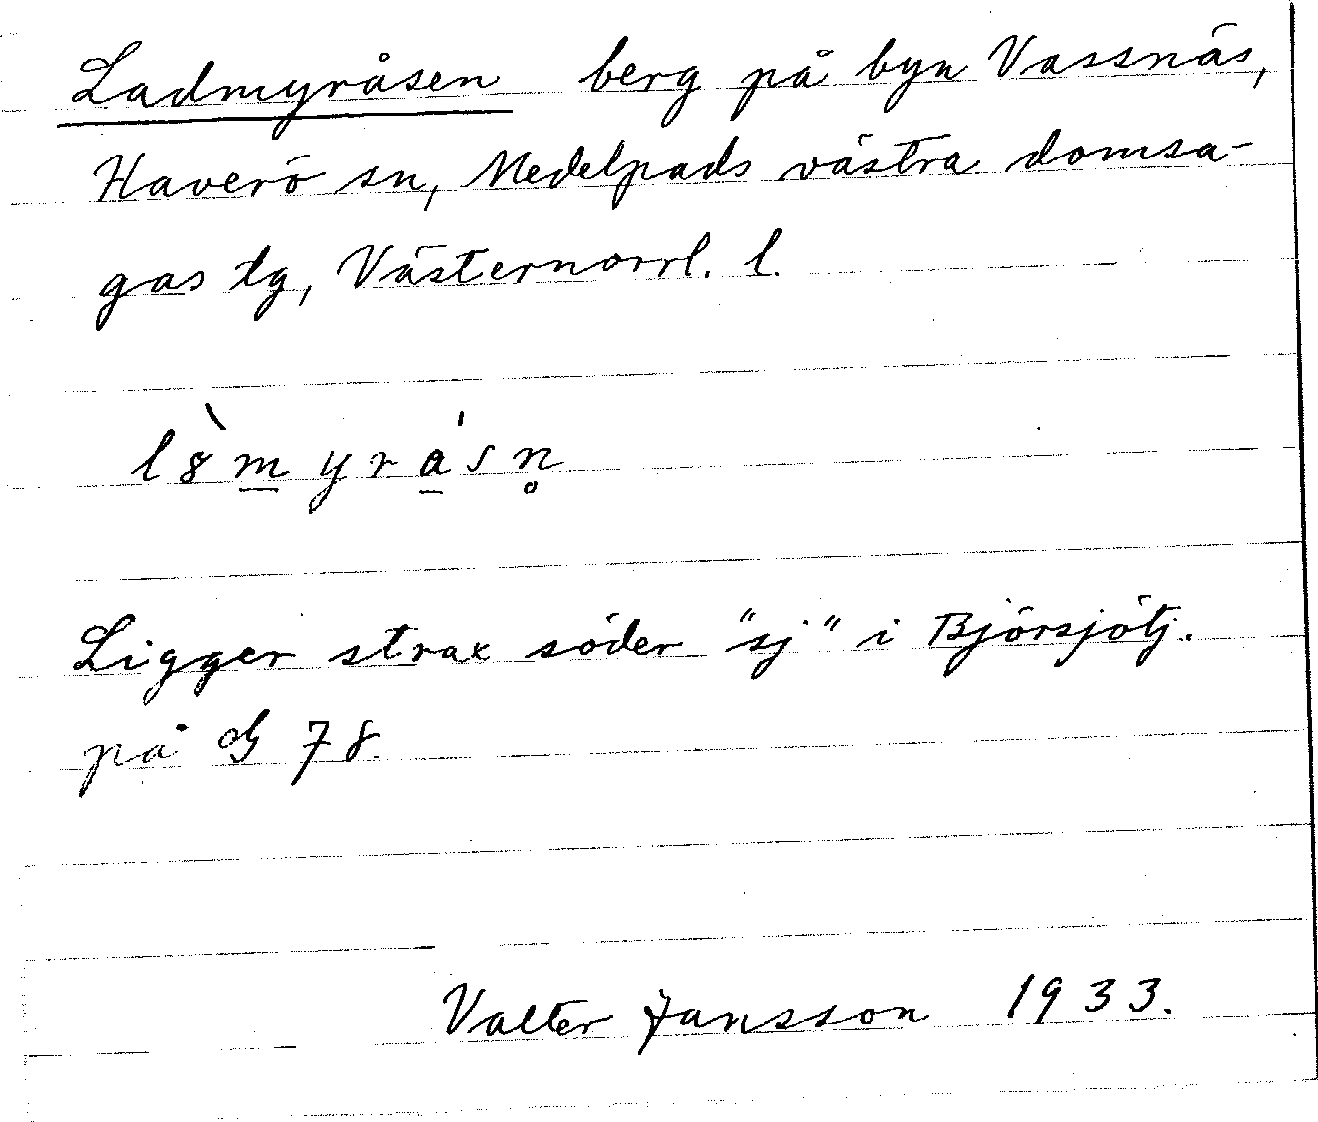 Ladmyråsen berg på byn Vassnäs,
Haverö sn, Medelpads västra domsa-
gas tg, Västernorrl. l.
l8̀m̲yrá̲sn̥
Ligger strax söder "sj" i Björsjötj.
på G 78.
Valter Jansson 1933.